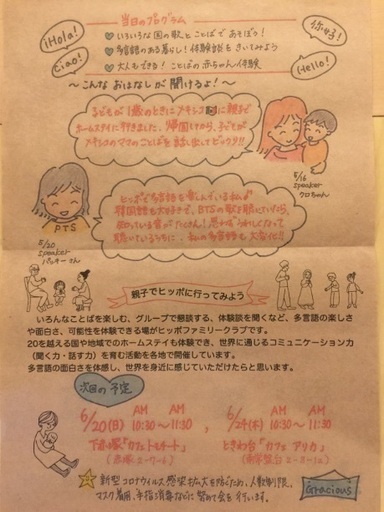 当日のプログラム
¡Hola!
Ciao!
你好!
Hello!
いろいろな国の歌とことばであそぼう!
多言語のある暮らし!体験談をきいてみよう
大人もできる!ことばの赤ちゃん体験
~こんなおはなしが聞けるよ!~
子どもが1歳のときにメキシコに親子で
ホームステイに行きました。帰国してから、子どもが
メキシコのママのことばを話し出してビックリ!!
5/16
speaker
クロちゃん
ヒッポで多言語を楽しんでいる私。
韓国語も大好きで、BTSの歌を聴いていたら、
知っている音がたくさん!
私の多言語も大変化!!
BTS
5/20
speaker
親子でヒッポに行ってみよう
いろんなことばを楽しむ、グループで懇談する、体験談を聞くなど、多言語の楽しさ
や面白さ、可能性を体験できる場がヒッポファミリークラブです。
20を越える国や地域でのホームステイも体験でき、世界に通じるコミュニケーション力
(聞く力・話す力)を育む活動を各地で開催しています。
多言語の面白さを体感し、世界を身近に感じていただけたらと思います。
次回の予定
6/20(日) AM 10:30 ~ AM 11:30 ,
6/24(木) AM 10:30 ~ AM 11:30
下赤塚「カフェトモチート」
ときわ台「カフェ アリカ」
(赤塚2-
新型コロナウイルス感染拡大を防ぐため、人数制限、
マスク着用、手指消毒などに努めて会を行います。
Gracious